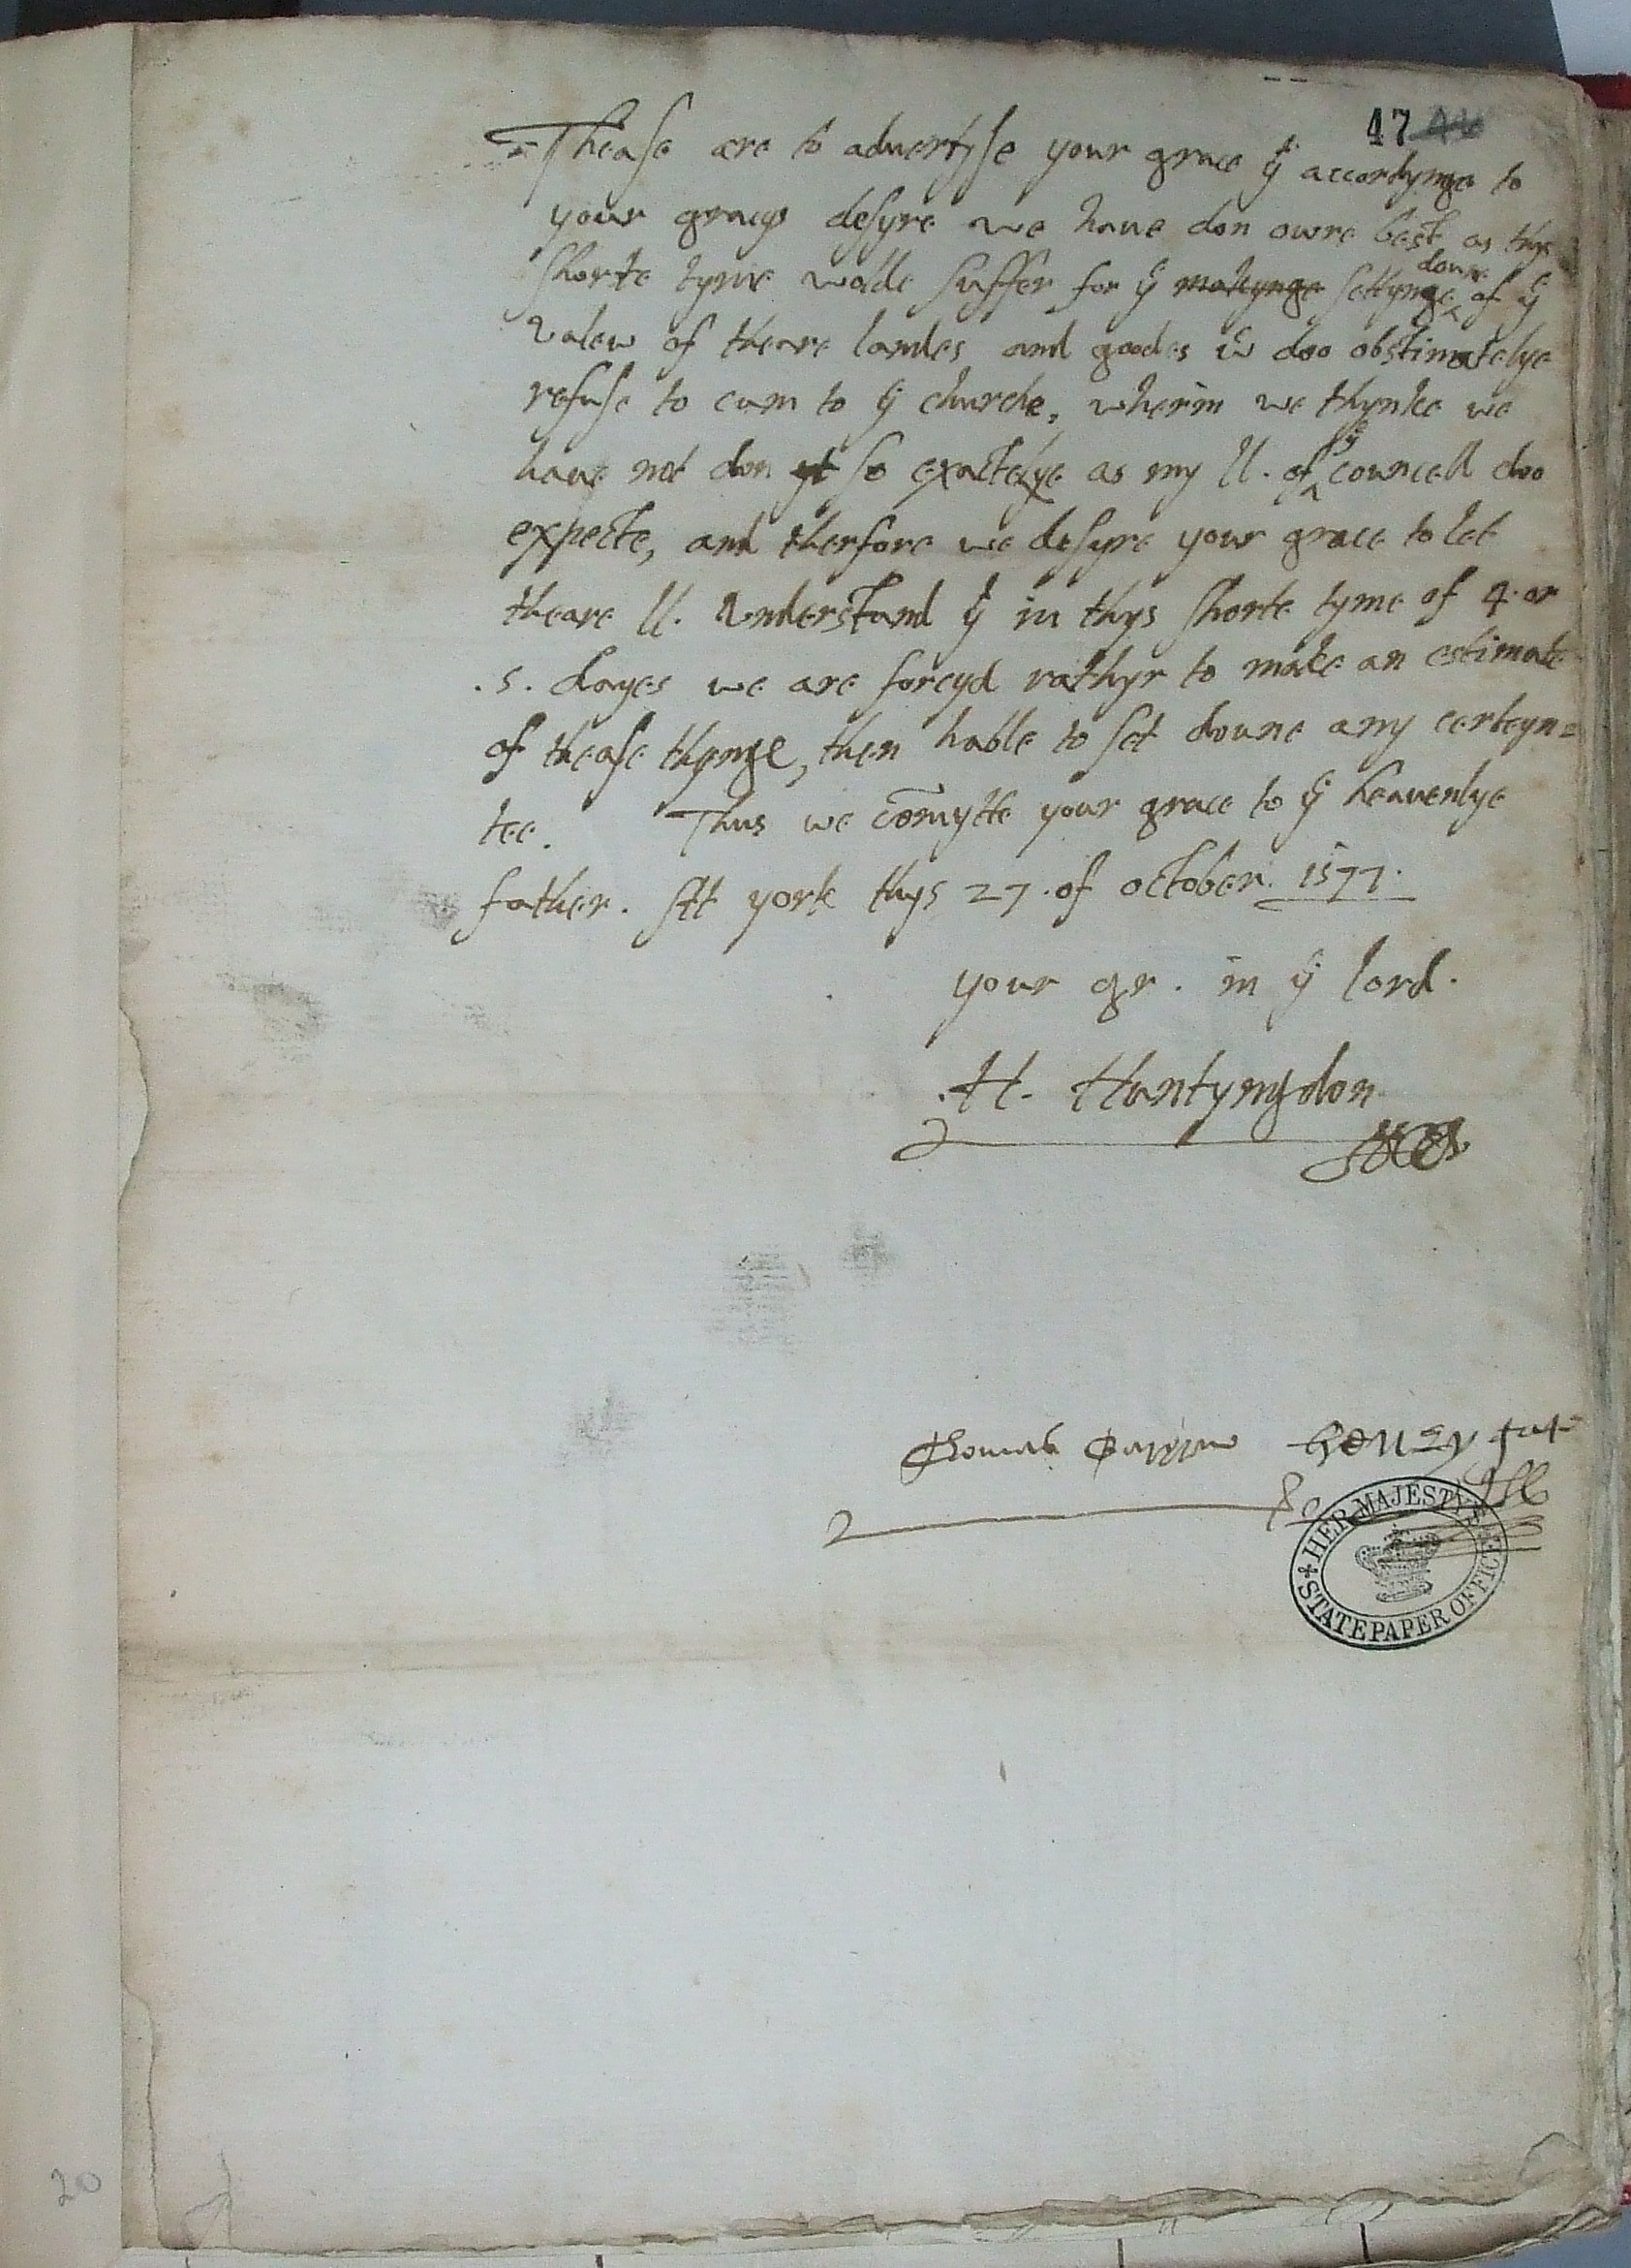 47 46
Thease are to advertyse your grace yt accordynge to
your gracys desyre we have don owre best as thys
shorte tyme wolde suffer for ye makynge settynge doune of ye
valew of theare landes and goodes wch doo obstinatelye
refuse to cum to ye churche, wherin we thynke we
have not don yt so exactelye as my ll. of ye councell doo
expecte, and therfore we desyre your grace to let
theare ll. understand yt in thys shorte tyme of 4. or
.5. dayes we are forcyd rathyr to make an estimate
of thease thynge, then hable to set doune any certeyn=
tee. Thus we comytte your grace to ye heavenlye
father. At york thys 27. of october. 1577.
your gr. in ye lord.
H. Huntyngdon
Thomas Henry
HER MAJESTY'S STATE PAPER OFFICE
20